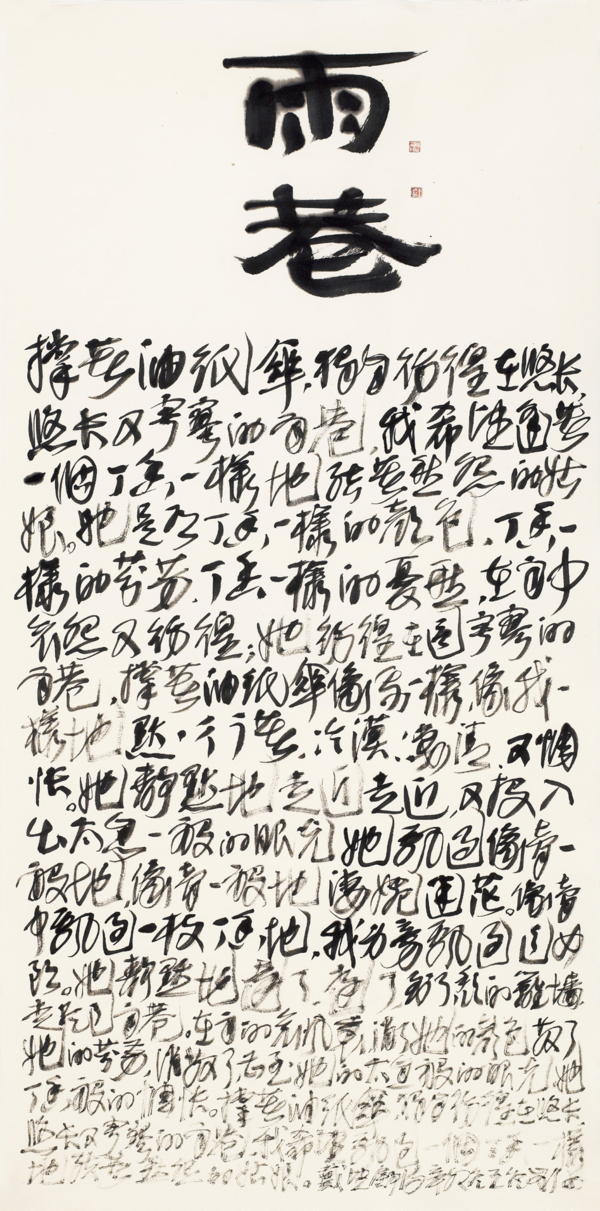 雨
巷
撑着油纸伞,獨自彷徨在悠长,
悠长又寂寥的雨巷,我希望逢着
一個丁香一樣地結着愁怨的姑
娘。她是有丁香一樣的颜色,丁香一
樣的芬芳,丁香一樣的憂愁,在雨中
哀怨又彷徨;她彷徨在這寂寥的
雨巷,撑着油纸傘像我一樣,像我一
樣地默默彳亍着,冷漠,凄清,又惆
怅。她静默地走近走近,又投入
出太息一般的眼光她飘過像夢一
般地,像夢一般地凄婉迷茫。像夢
中飘過一枝丁香地,我身旁飘過這女
郎。她静默地遠了,遠了到了颓的籬墙
走盡這雨巷。在雨的哀曲里,消了她的颜色散了
她的芬芳,消散了甚至她的太息般的眼光她
丁香般的惆怅。撑着油纸傘獨自彷徨在悠长
悠长又寂寥的雨巷我希望飘過一個丁香一樣
地結着愁怨的姑娘。戴望舒